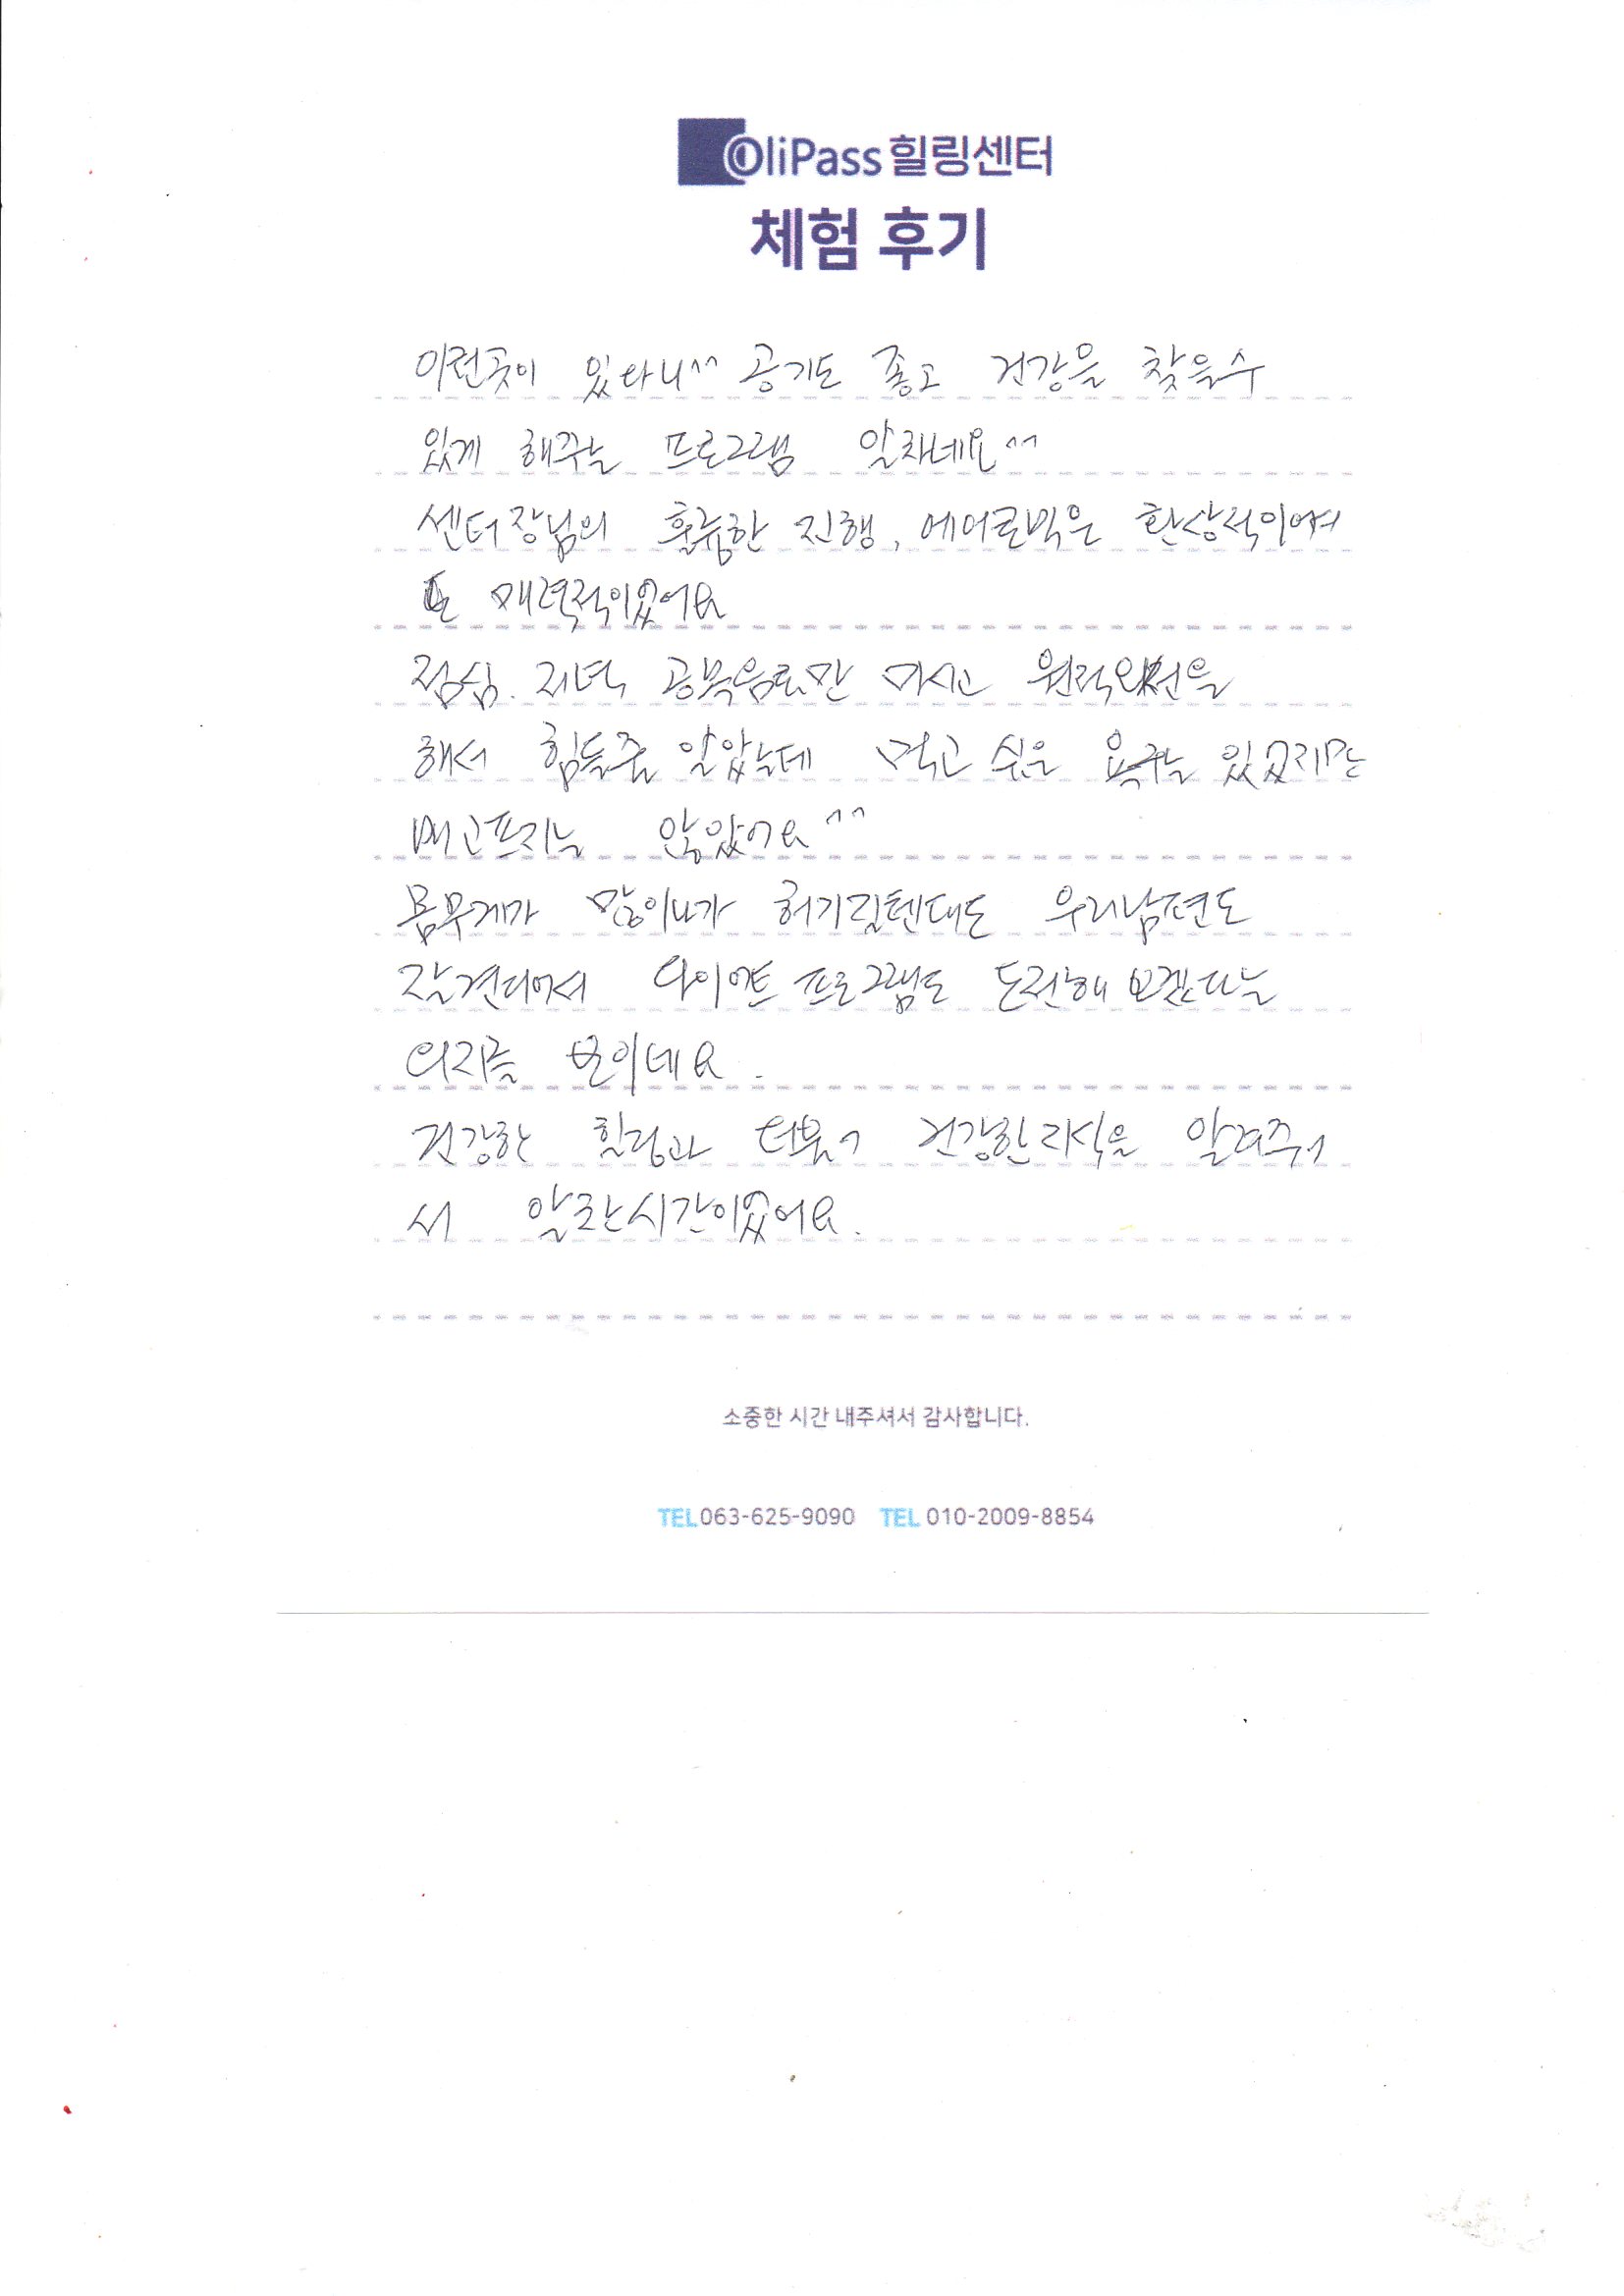 OliPass 힐링센터
체험 후기
이런곳이 있다니^^ 공기도 좋고 건강을 찾을수
있게 해주는 프로그램 알차네요^^
센터장님의 훌륭한 진행, 에어로빅은 환상적이여서
또 매력적이였어요
점심. 저녁 공복음료만 마시고 원적외선을
해서 힘들줄 알았는데 먹고 싶은 욕구는 있었지만
배고프지는 않았어요^^
몸무게가 많이나가 허기질텐데도 우리남편도
잘견디어서 다이어트 프로그램도 도전해 보겠다는
의지를 보이네요.
건강한 힐링과 더불어 건강한지식을 알려주어
서 알찬시간이였어요.
소중한 시간 내주셔서 감사합니다.
TEL 063-625-9090 TEL 010-2009-8854